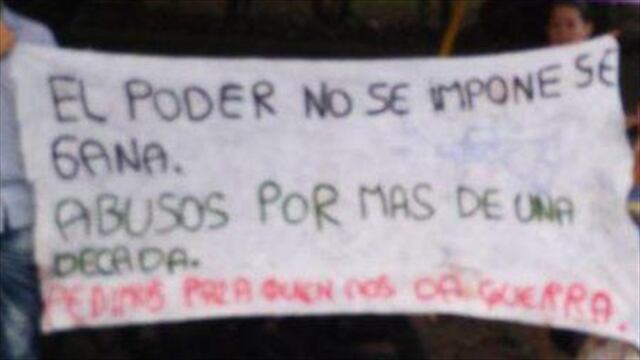 EL PODER NO SE IMPONE SE
GANA.
ABUSOS POR MAS DE UNA
DECADA.
PEDIMOS PAZ A QUIEN NOS DA GUERRA.